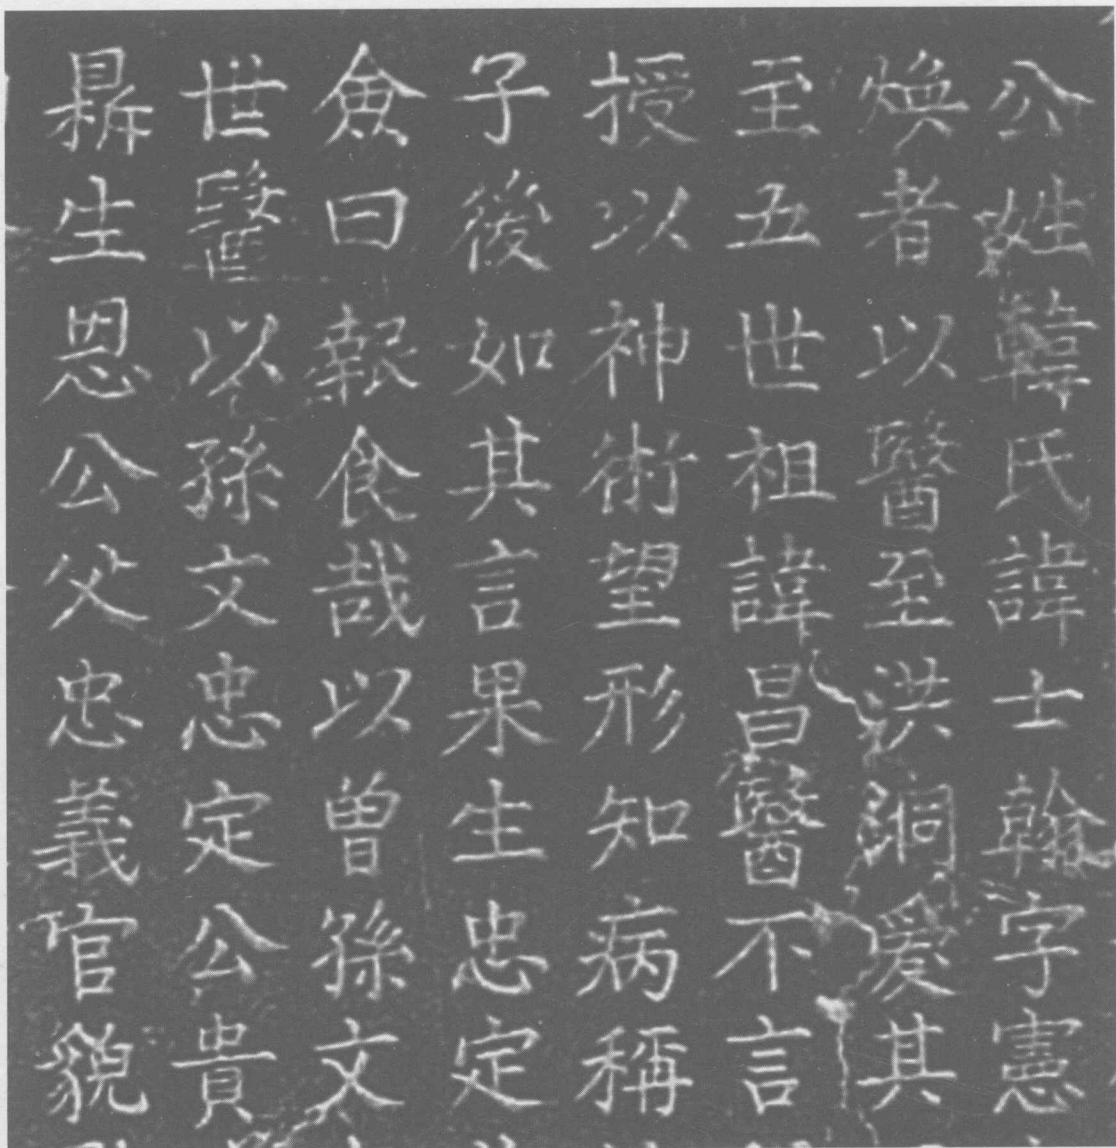 公姓韓氏諱士翰字憲
煥者以醫至洪洞爰其
至五世祖諱昌醫不言
授以神術望形知病稱
子後如其言果生忠定
僉曰報食哉以曾孫文
世醫以孫文忠定公貴
鼎生恩公父忠義官貌